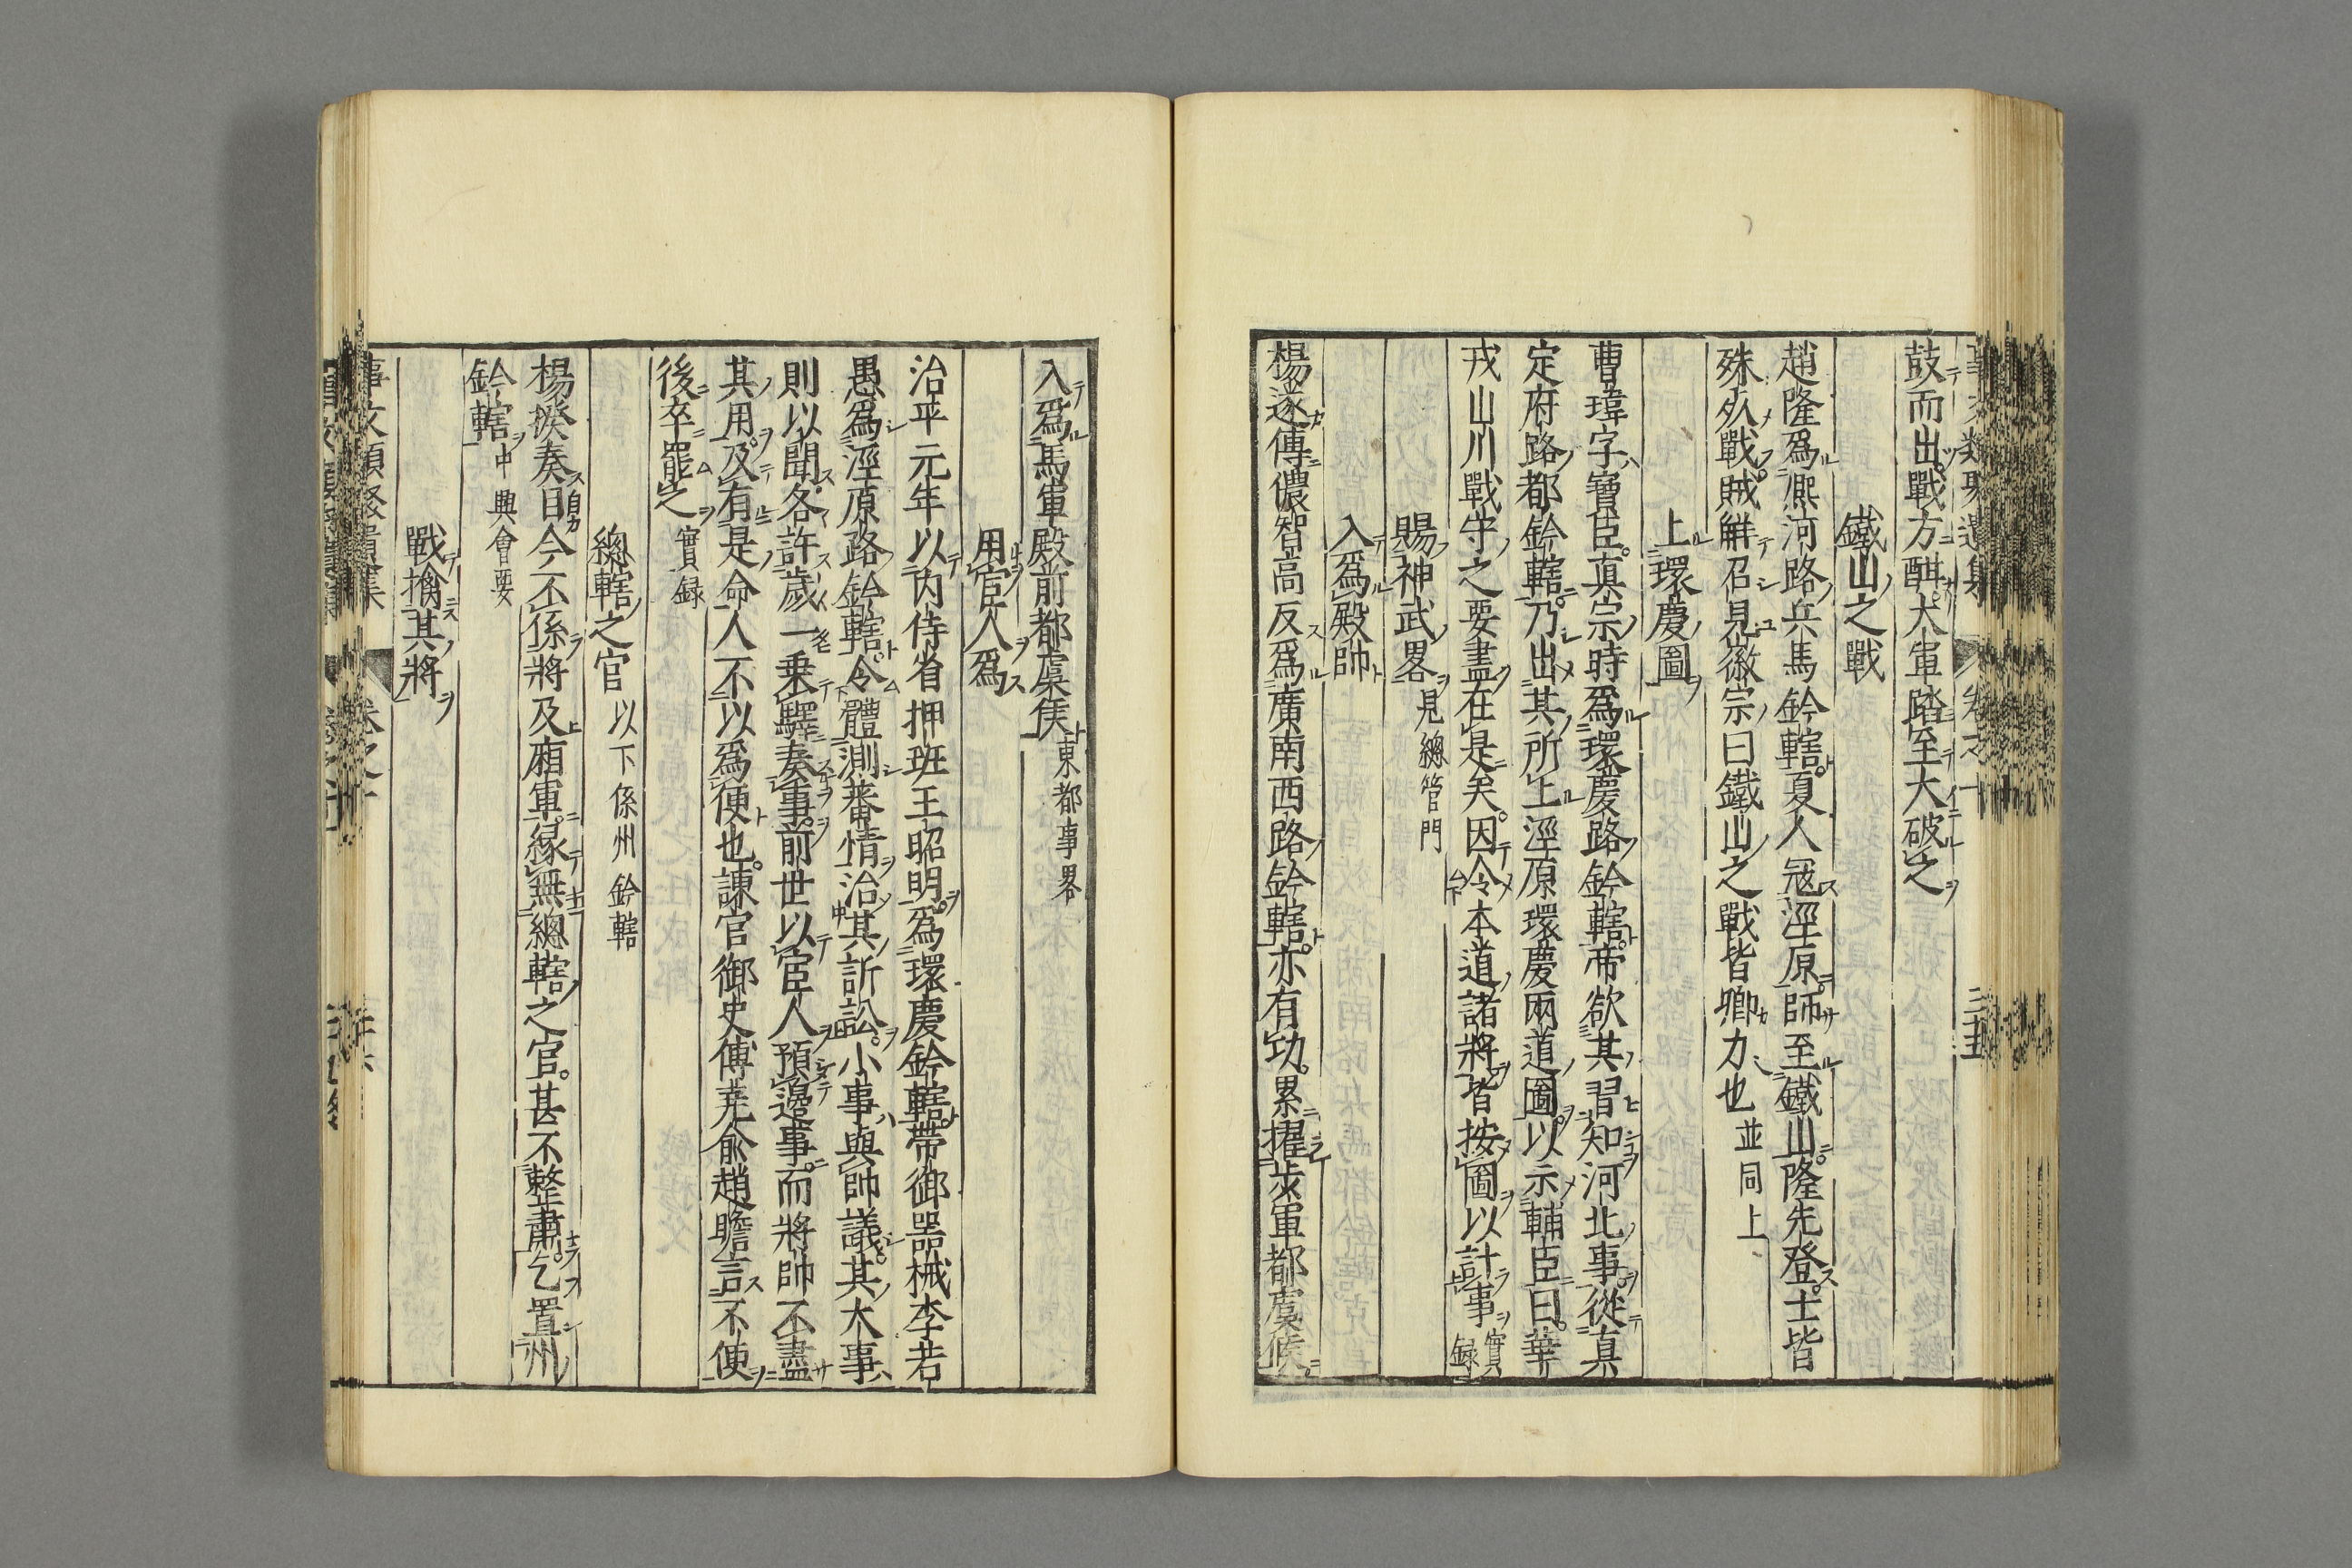 鼓而出戰方酣大軍踏至大破之
鐵山之戰
趙隆爲凞河路兵馬鈐轄夏人冦涇原師至鐵山隆先登士皆
殊死戰賊觧召見徽宗曰鐵山之戰皆卿力也並同上
上環慶圖
曹瑋字寶臣真宗時爲環慶路鈐轄帝欲其習知河北事從真
定府路都鈐轄乃出其所上涇原環慶兩道圖以示輔臣曰華
戎山川戰守之要盡在是矣因令本道諸將皆按圖以計事實録
賜神武畧見緫管門
入爲殿帥
楊遂傳儂智高反爲廣南西路鈐轄亦有功累擢步軍都虞候
入爲馬軍殿前都虞候東都事畧
用宦人爲
治平元年以内侍省押班王昭明爲環慶鈐轄帶御器械李若
愚爲涇原路鈐轄令體測蕃情治其訴訟小事與帥議其大事
則以聞各許歲一乗驛奏事前世以宦人預邊事而將帥不盡
其用及有是命人不以爲便也諌官御史傅尭俞趙瞻言不便
後卒罷之實録
緫轄之官以下係州鈐轄
楊揆奏曰今不係將及廂軍縁無緫轄之官甚不整肅乞置州
鈐轄中興會要
戰擒其將
事文類聚遺集 卷之十